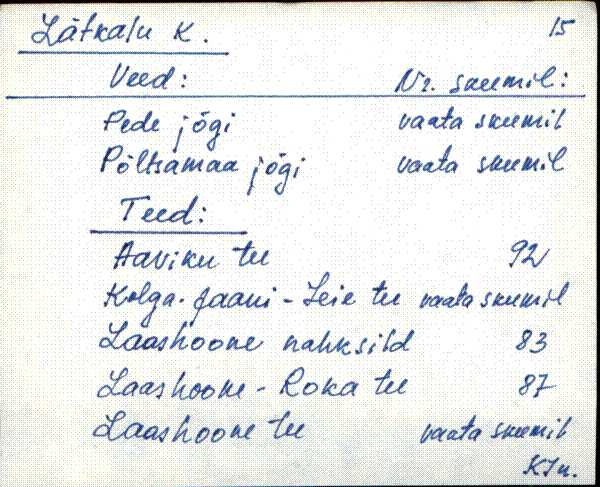 Lätkalu K. 15
Veed: Nr. skeemil:
Pede jõgi vaata skeemil
Põltsamaa jõgi vaata skeemil
Teed:
Aaviku tee 92
Kolga-Jaani - Leie tee vaata skeemil
Laashoone nahksild 83
Laashoone - Roka tee 87
Laashoone tee vaata skeemil
KJn.